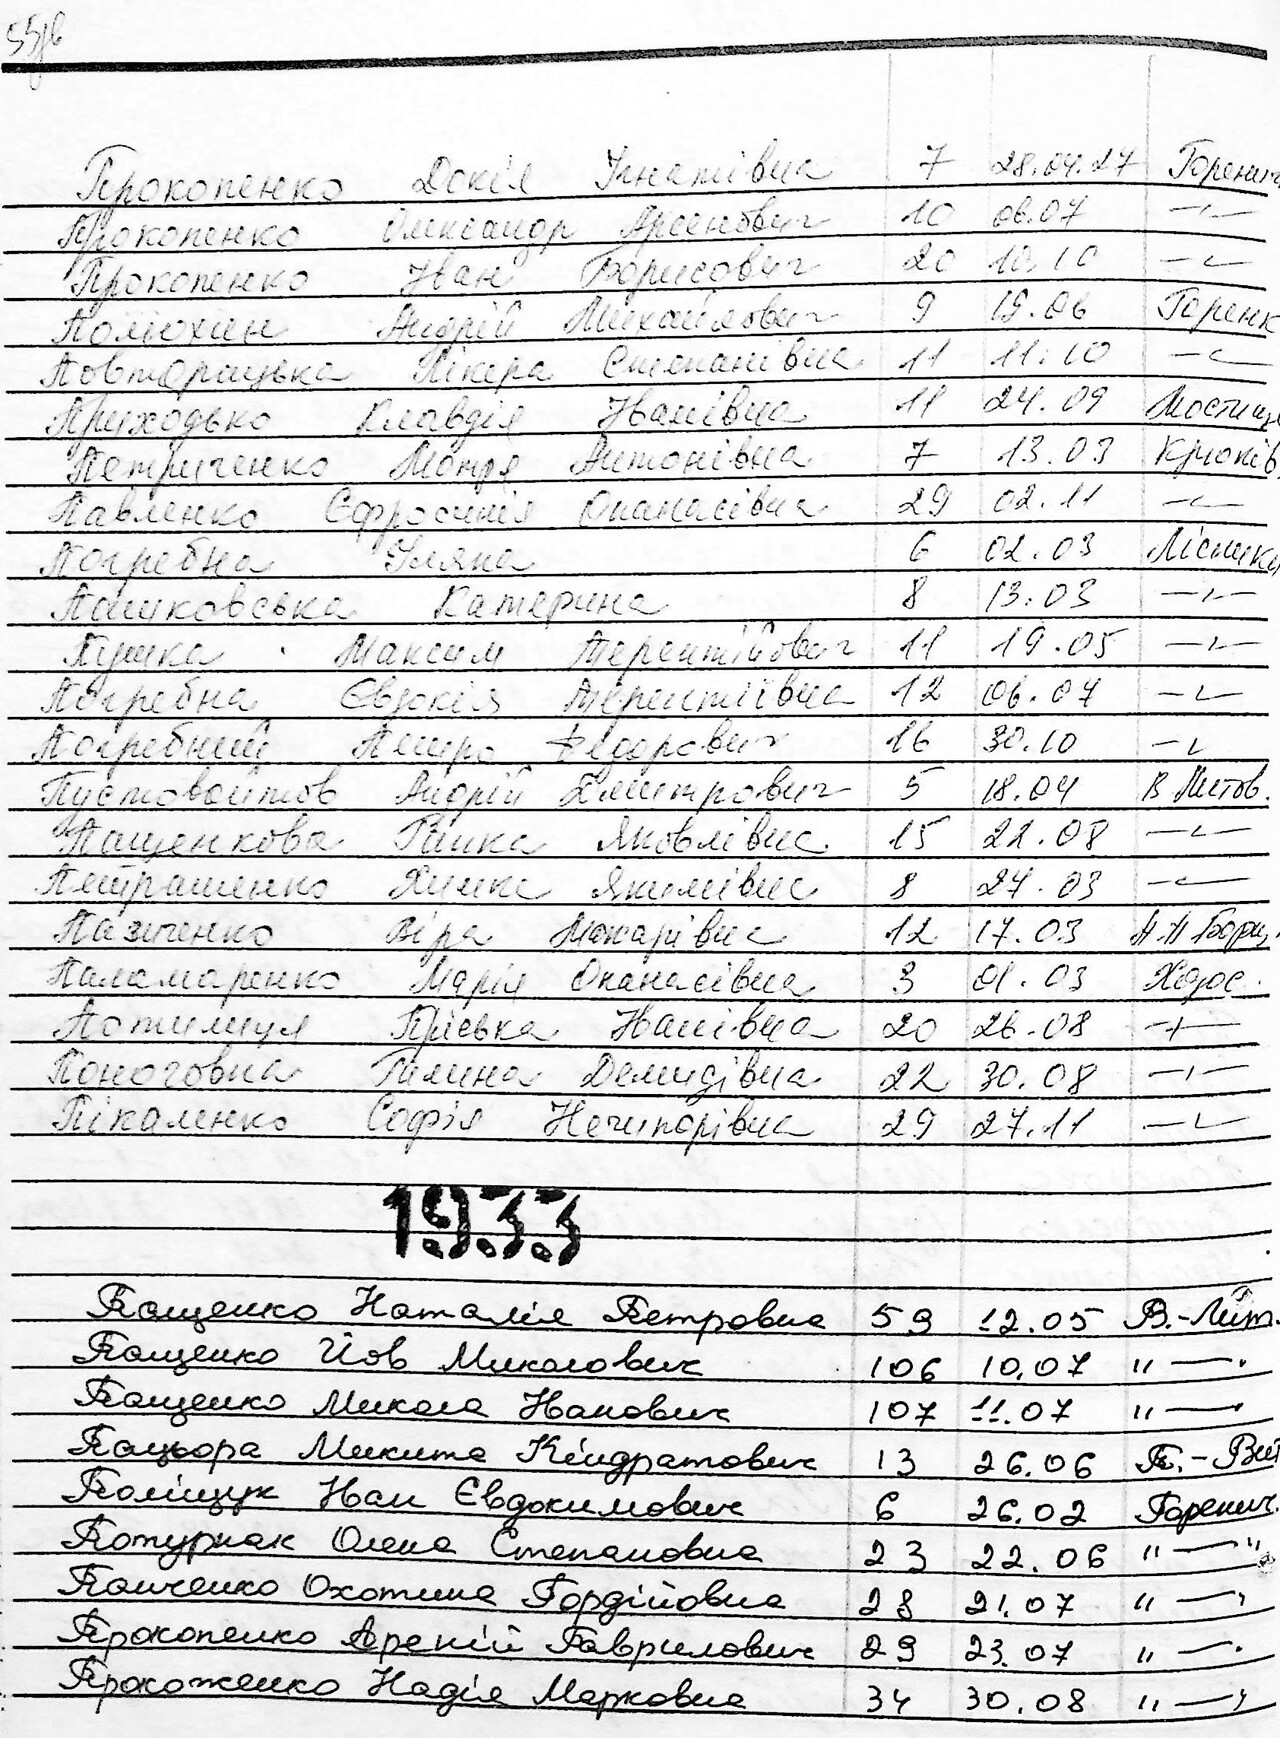 Прокопенко Докія Ігнатівна 7 28.04.27 Горенич
Прокопенко Олександр Арсенович 10 06.07 —"—
Прокопенко Іван Борисович 20 10.10 —"—
Андрій Михайлович 9 19.06 Горенк
Повторацька Пікера Степанівна 11 11.10 —"—
Приходько Клавдія Іванівна 11 24.09 Мостище
Петриченко Мотря Антонівна 7 13.03 Крюків
Павленко Єфросинія Опанасівна 29 02.11 —"—
Погребна Уляна 6 02.03 Лісники
Катерина 8 13.03 —"—
Пушка Максим Терентійович 11 19.05 —"—
Погребна Євдокія Терентіївна 12 06.07 —"—
Погребний Петро Федорович 16 30.10 —"—
Пустовойтов Андрій Дмитрович 5 18.04 В Литов.
Пащенкова Ганка Яковлівна 15 22.08 —"—
Петрашенко Химка Якимівна 8 27.03 —"—
Пазіченко Віра Макарівна 12 17.03
Паламаренко Марія Опанасівна 3 01.03 Ходос.
Приська Іванівна 20 26.08 —"—
Поноговна Галина Демидівна 22 30.08 —"—
Пікаленко Софія Нечипорівна 29 27.11 —"—
1933
Пащенко Наталія Петровна 59 12.05 В.-Лит.
Пащенко Йов Миколович 106 10.07 "—"
Пащенко Микола Іванович 107 11.07 "—"
Пацьора Микита Кіндратович 13 26.06 П.-Вит
Поліщук Іван Євдокимович 6 26.02 Горенич.
Потурнак Олена Степановна 23 22.06 "—"
Панченко Охотина Гордійовна 28 21.07 "—"
Прокопенко Арсеній Гаврилович 29 23.07 "—"
Прокоженко Надія Марковна 34 30.08 "—"